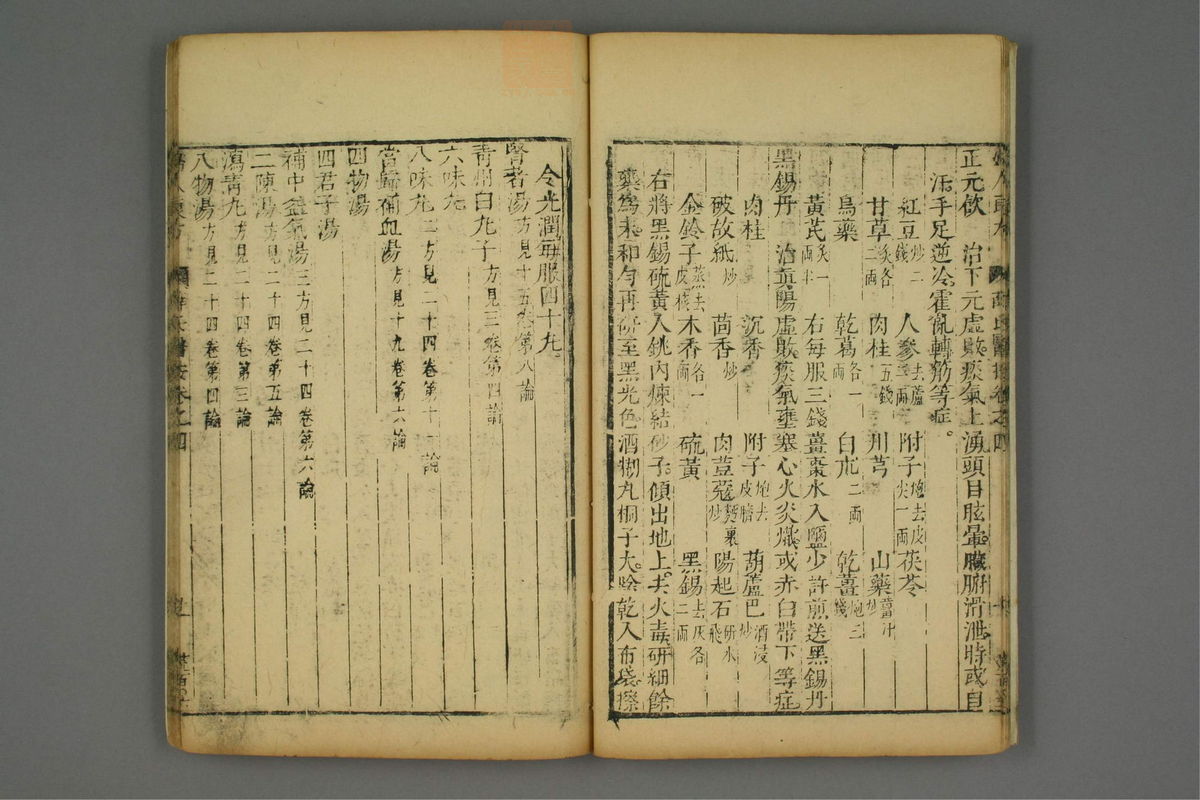 正元飲 治下元虛敗痰氣上湧頭目眩暈臟腑滑泄時或自
汗手足逆冷霍亂轉筋等症
紅豆炒二錢 人參去蘆二兩 附子炮去皮尖一兩 茯苓
甘草炙各二兩 肉桂五錢 川芎 山藥薑汁炒
烏藥 乾葛各一兩 白朮二兩 乾薑炮三錢
黃芪炙一兩半 右每服三錢薑棗水入鹽少許煎送黑錫丹
黑錫丹 治真陽虛敗痰氣壅塞心火炎熾或赤白帶下等症
肉桂 沉香 附子炮去皮臍 葫蘆巴酒浸炒
破故紙炒 茴香炒 肉荳蔻麪裏炒 陽起石研水飛
金鈴子蒸去皮核 木香各一兩 硫黃 黑錫去灰各二兩
右將黑錫硫黃入銚內煉結砂子傾出地上去火毒研細餘
藥為末和勻再研至黑光色酒糊丸桐子大陰乾入布袋擦
令光潤每服四十丸
腎著湯方見十五卷第八論
青州白丸子方見三卷第四論
六味丸
八味丸二方見二十四卷第十一論
當歸補血湯方見十九卷第六論
四物湯
四君子湯
補中益氣湯三方見二十四卷第六論
二陳湯方見二十四卷第五論
瀉青丸方見二十四卷第三論
八物湯方見二十四卷第四論